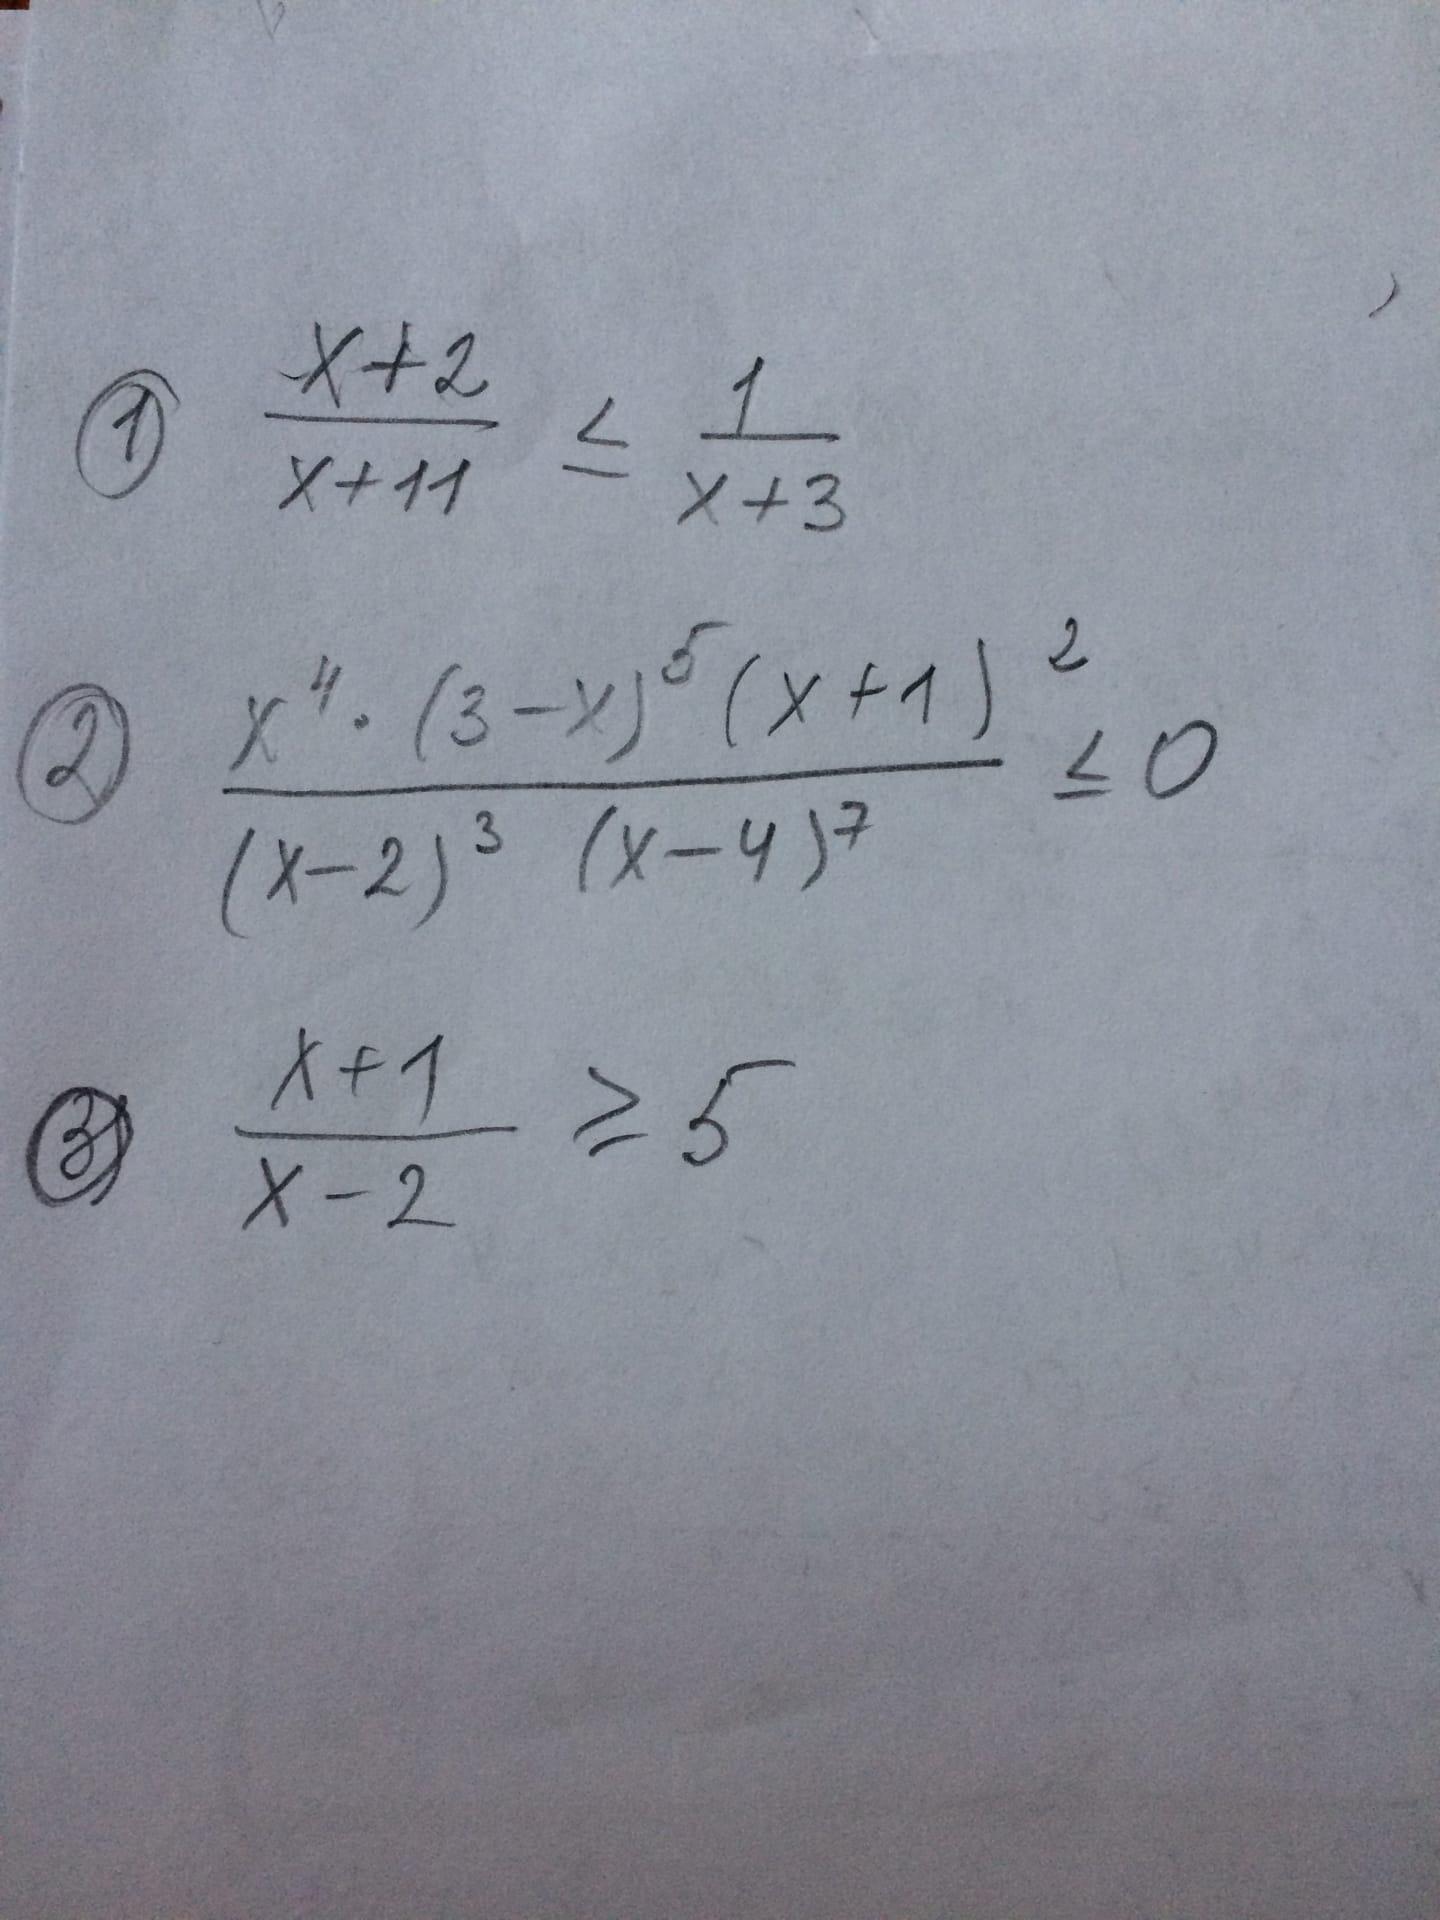 ① x+2/x+11 ≤ 1/x+3
② x⁴·(3-x)⁵(x+1)²/(x-2)³ (x-4)⁷ ≤ 0
③ x+1/x-2 ≥ 5